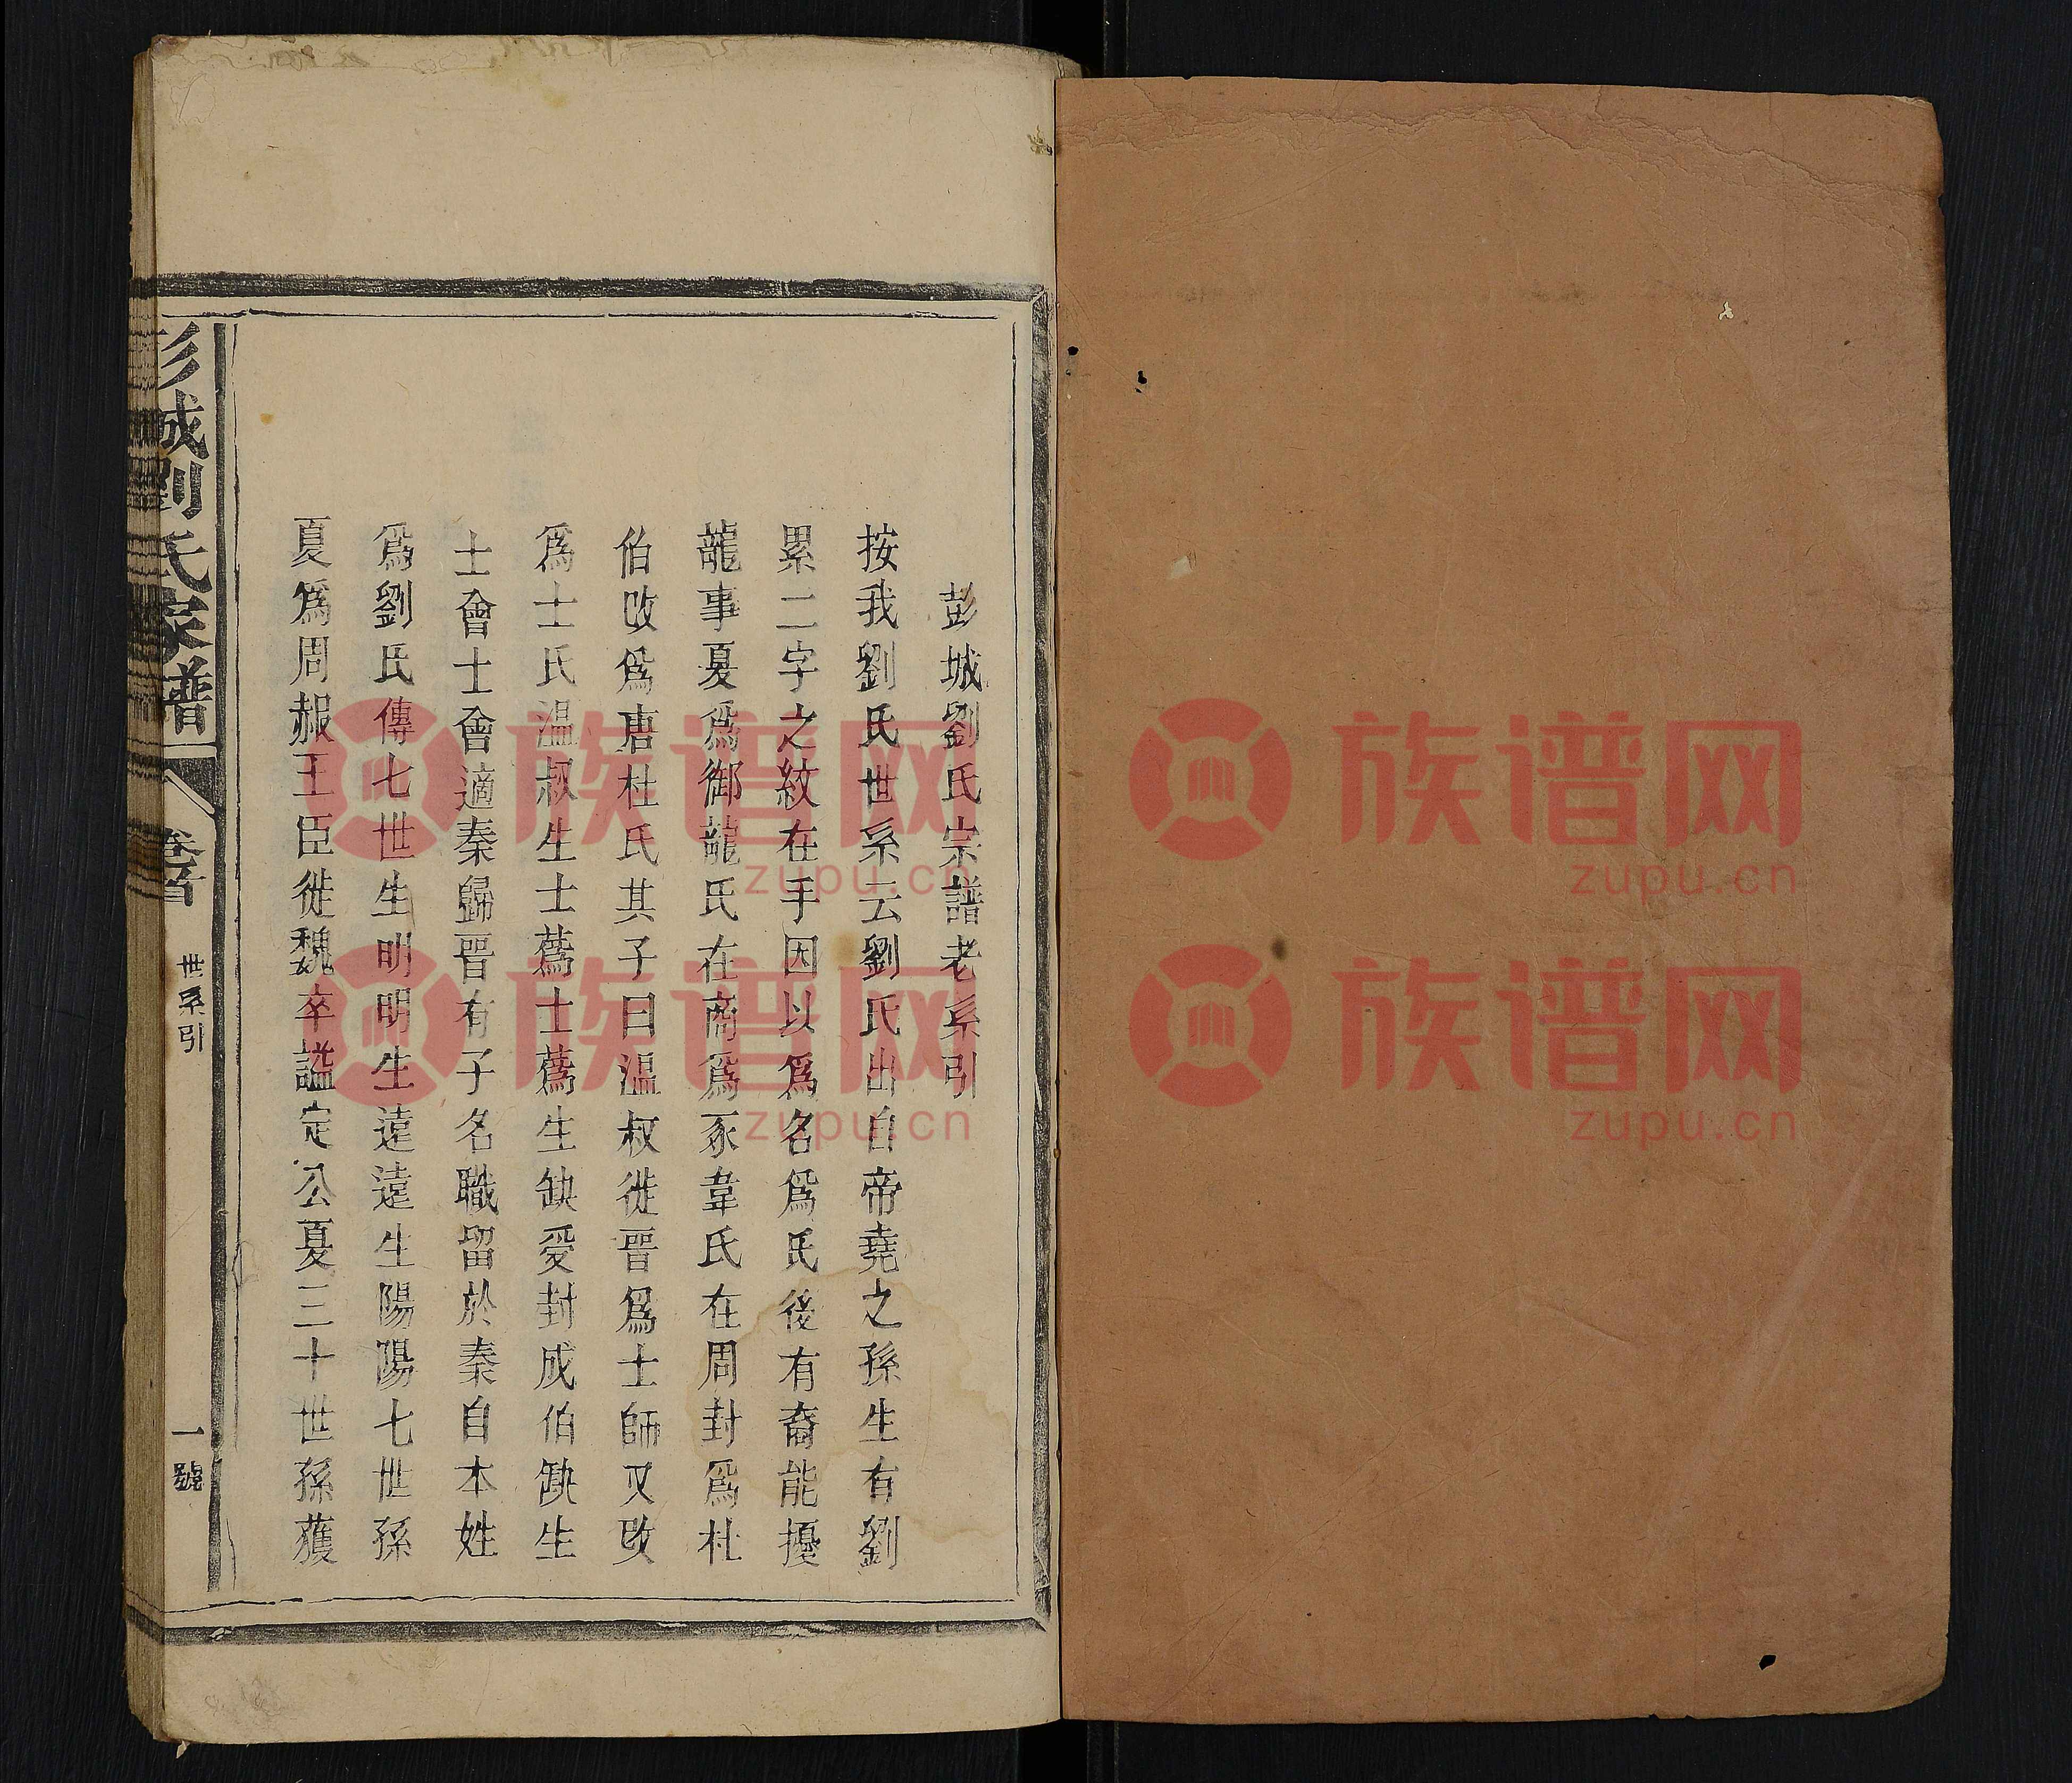 彭城劉氏宗譜老系引
按我劉氏世系云劉氏出自帝堯之孫生有劉
累二字之紋在手因以爲名爲氏後有裔能擾
龍事夏爲御龍氏在商爲豕韋氏在周封爲杜
伯改爲唐杜氏其子曰温叔徙晉爲士師又改
爲士氏温叔生士蔿士蔿生缺受封成伯缺生
士會士會適秦歸晉有子名職留於秦自本姓
爲劉氏傳七世生明明生遠遠生陽陽七世孫
夏爲周赧王臣徙魏卒諡定公夏三十世孫獲
彭城劉氏家譜
卷首
世系引
一號
族谱网
zupu.cn
族谱网
zupu.cn
族谱网
zupu.cn
族谱网
zupu.cn